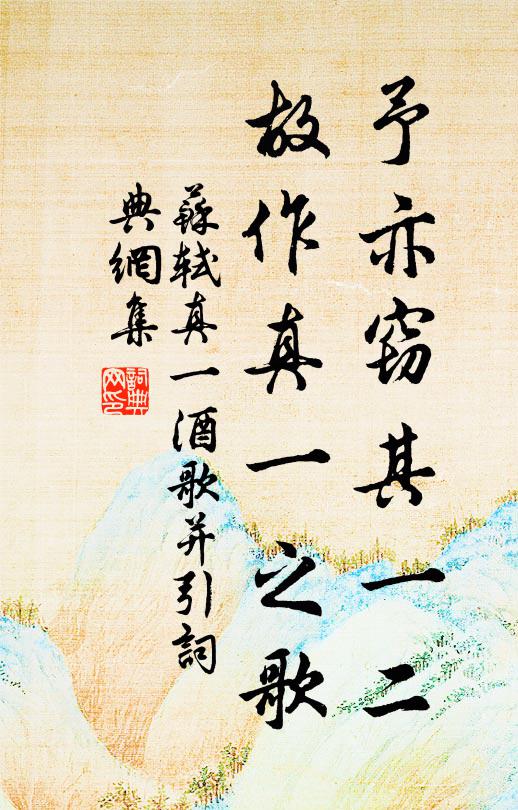 予亦窃其一二
故作真一之歌
蘇軾真一酒歌并引詞
典網集
詞典网印